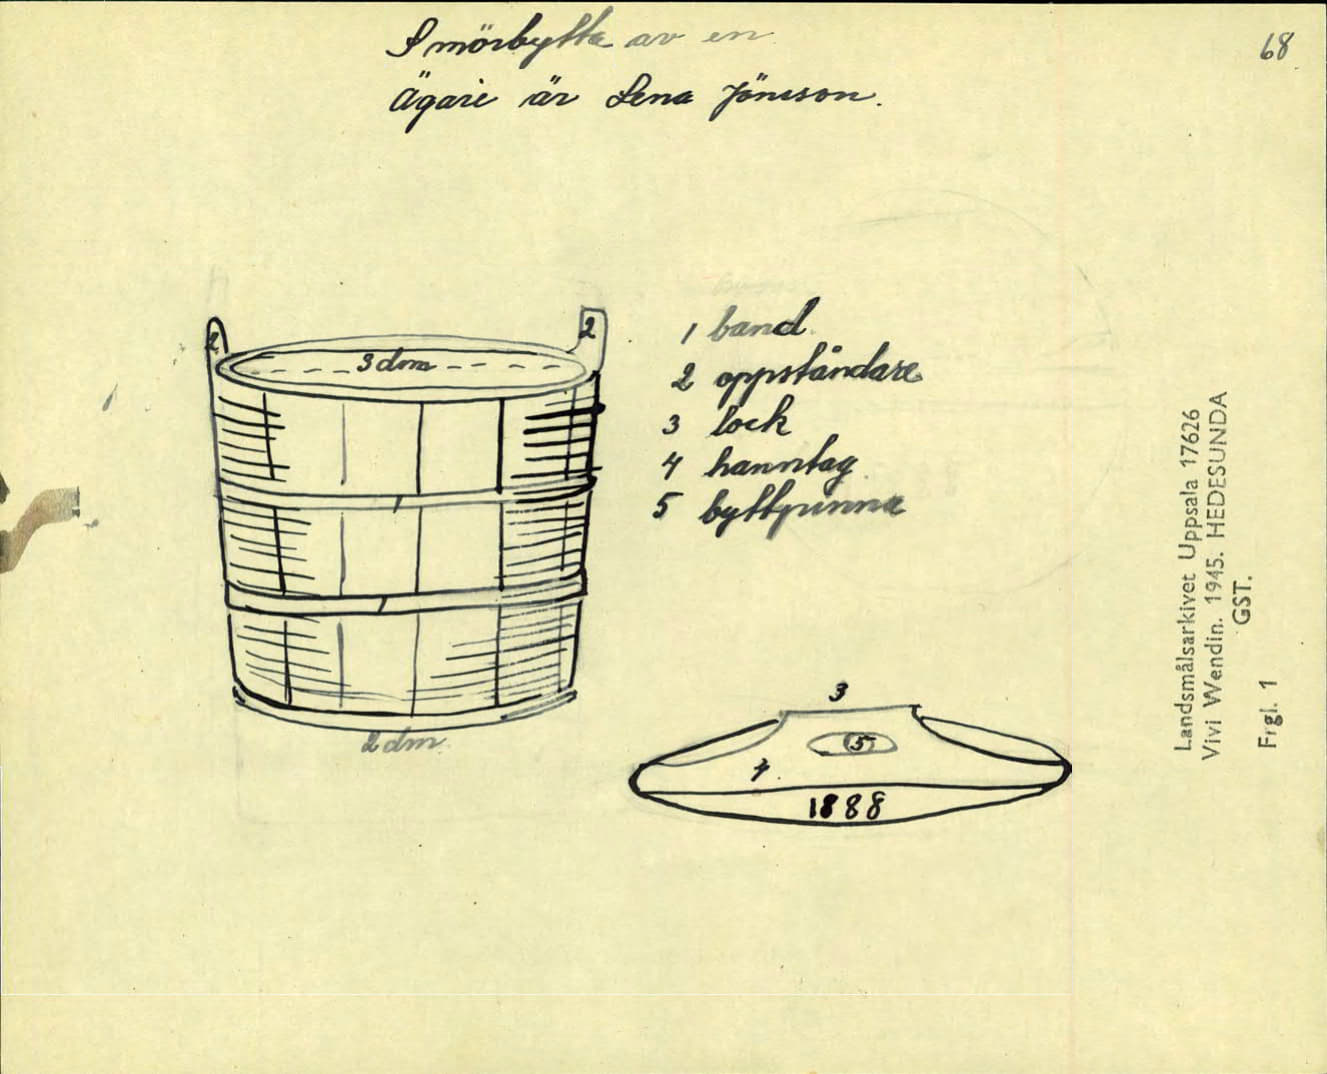 Smörbytta av en
Ägare är Lena Jönsson.
68
2
2
3 dm
1 band
2 oppståndare
3 lock
4 hanntag
5 byttpinna
2 dm
3
5
4
1888
Landsmålsarkivet Uppsala 17626
Vivi Wendin. 1945. HEDESUNDA
GST.
Frgl. 1